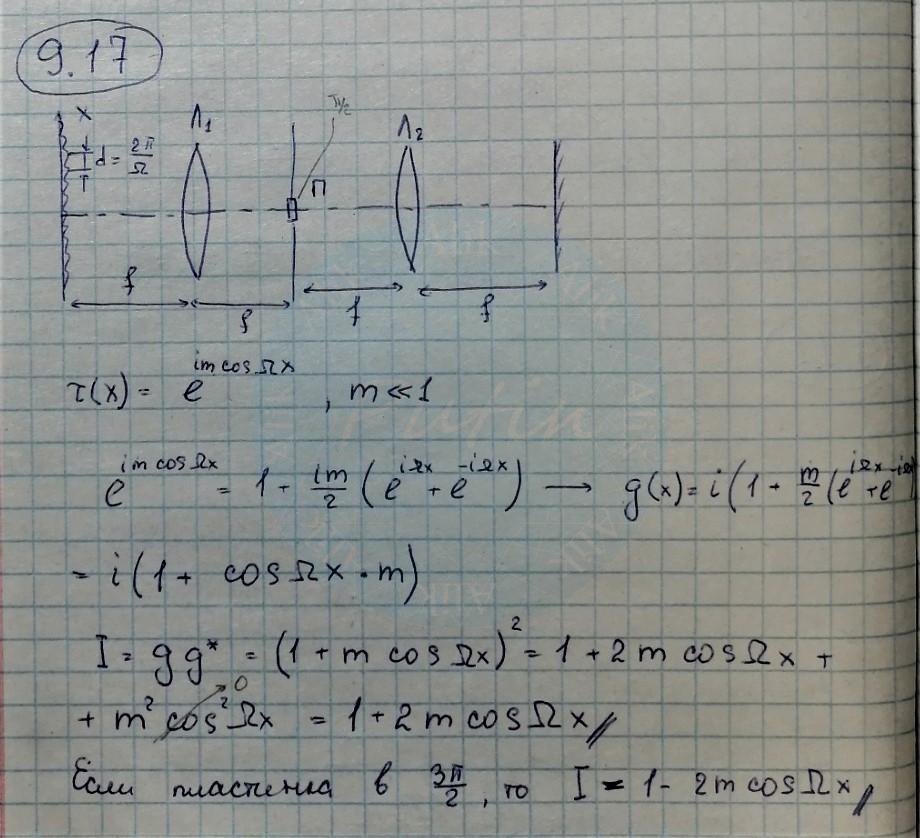 9.17
x Л₁ π/2 Л₂
d = 2π/Ω П
f f f f
τ(x) = e^{im cos Ωx}, m ≪ 1
e^{im cos Ωx} = 1 + im/2 (e^{iΩx} + e^{-iΩx}) → g(x) = i(1 + m/2 (e^{iΩx} + e^{-iΩx})
= i(1 + cos Ωx · m)
I = gg* = (1 + m cos Ωx)² = 1 + 2m cos Ωx +
+ m² cos² Ωx → 0 = 1 + 2m cos Ωx //
Если пластинка в 3π/2, то I = 1 - 2m cos Ωx //